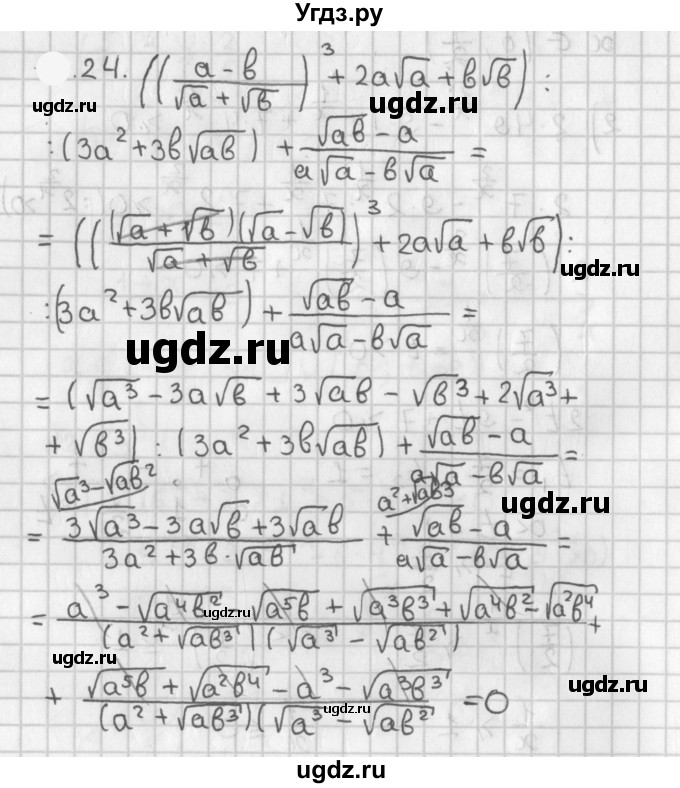 Угдз.ру
.24. ((a - b / √a + √b)³ + 2a√a + b√b) :
ugdz.ru ugdz.ru
: (3a² + 3b√ab) + √ab - a / a√a - b√a =
= (((√a + √b)(√a - √b) / √a + √b)³ + 2a√a + b√b) :
ugdz.ru
: (3a² + 3b√ab) + √ab - a / a√a - b√a =
ugdz.ru
= (√a³ - 3a√b + 3√ab - √b³ + 2√a³ +
+ √b³) : (3a² + 3b√ab) + √ab - a / a√a - b√a =
ugdz.ru
√a³ - √ab² a² + √ab³
= 3√a³ - 3a√b + 3√ab / 3a² + 3b·√ab + √ab - a / a√a - b√a =
ugdz.ru
= a³ - √a⁴b² - √a⁵b + √a³b³ + √a⁴b² - √a²b⁴ / (a² + √ab³)(√a³ - √ab²) +
ugdz.ru
+ √a⁵b + √a²b⁴ - a³ - √a³b³ / (a² + √ab³)(√a³ - √ab²) = 0
ugdz.ru ugdz.ru
ugdz.ru
ugdz.ru